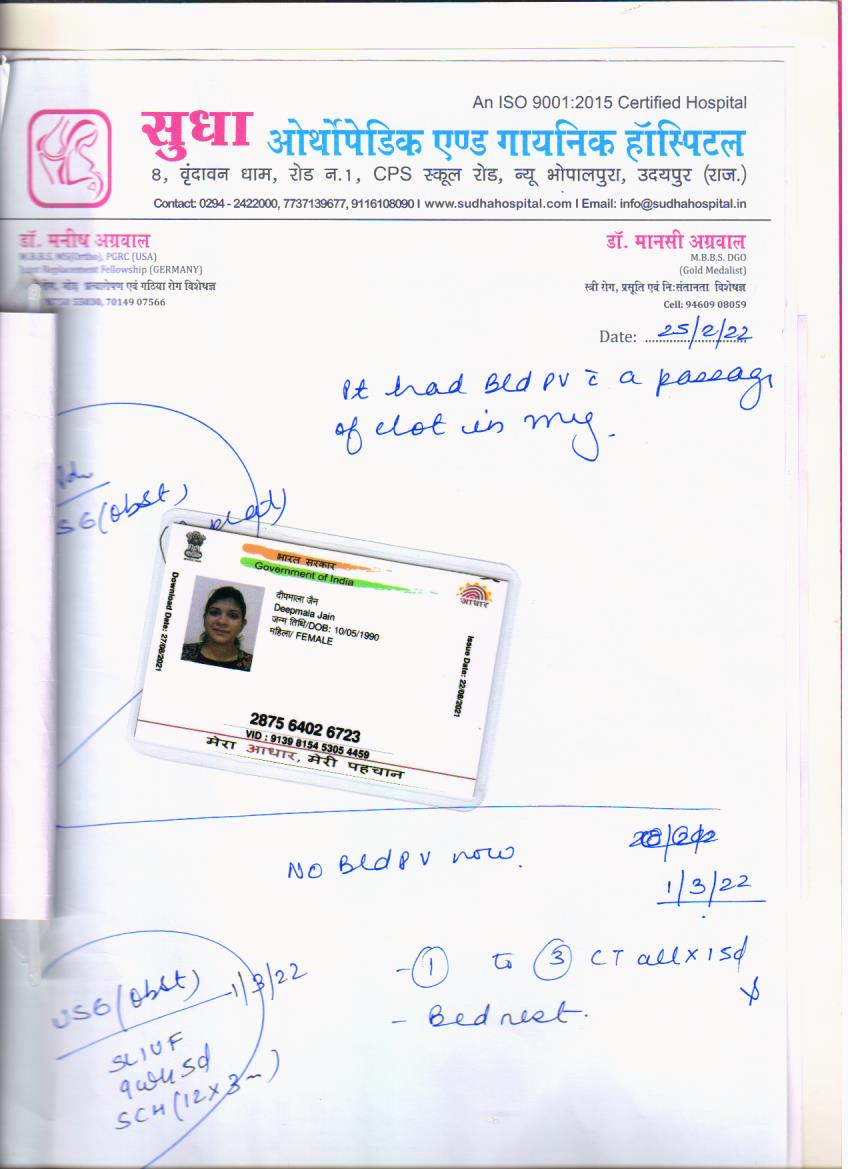 An ISO 9001:2015 Certified Hospital
सुधा ओर्थोपेडिक एण्ड गायनिक हॉस्पिटल
8, वृंदावन धाम, रोड न.1, CPS स्कूल रोड, न्यू भोपालपुरा, उदयपुर (राज.)
Contact: 0294 - 2422000, 7737139677, 9116108090 I www.sudhahospital.com I Email: info@sudhahospital.in
डॉ. मनीष अग्रवाल
M.B.B.S. MS(Ortho), PGRC (USA)
Joint Replacement Fellowship (GERMANY)
प्रत्यारोपण एवं गठिया रोग विशेषज्ञ
70149 07566
डॉ. मानसी अग्रवाल
M.B.B.S. DGO
(Gold Medalist)
स्त्री रोग, प्रसूति एवं नि:संतानता विशेषज्ञ
Cell: 94609 08059
Date: 25/2/22
Pt had Bld PV c̄ a passage
of clot in mg.
SG (Obst)
भारत सरकार
Government of India
आधार
Download Date: 27/08/2021
दीपमाला जैन
Deepmala Jain
जन्म तिथि/DOB: 10/05/1990
महिला/ FEMALE
Issue Date: 22/08/2021
2875 6402 6723
VID : 9139 8154 5305 4459
मेरा आधार, मेरी पहचान
NO Bld PV now.
1/3/22
- ① to ③ CT all x 15d
- Bed rest.
USG (Obst) 1/3/22
SLIUF
9w4 5d
SCH (12 x 3 )